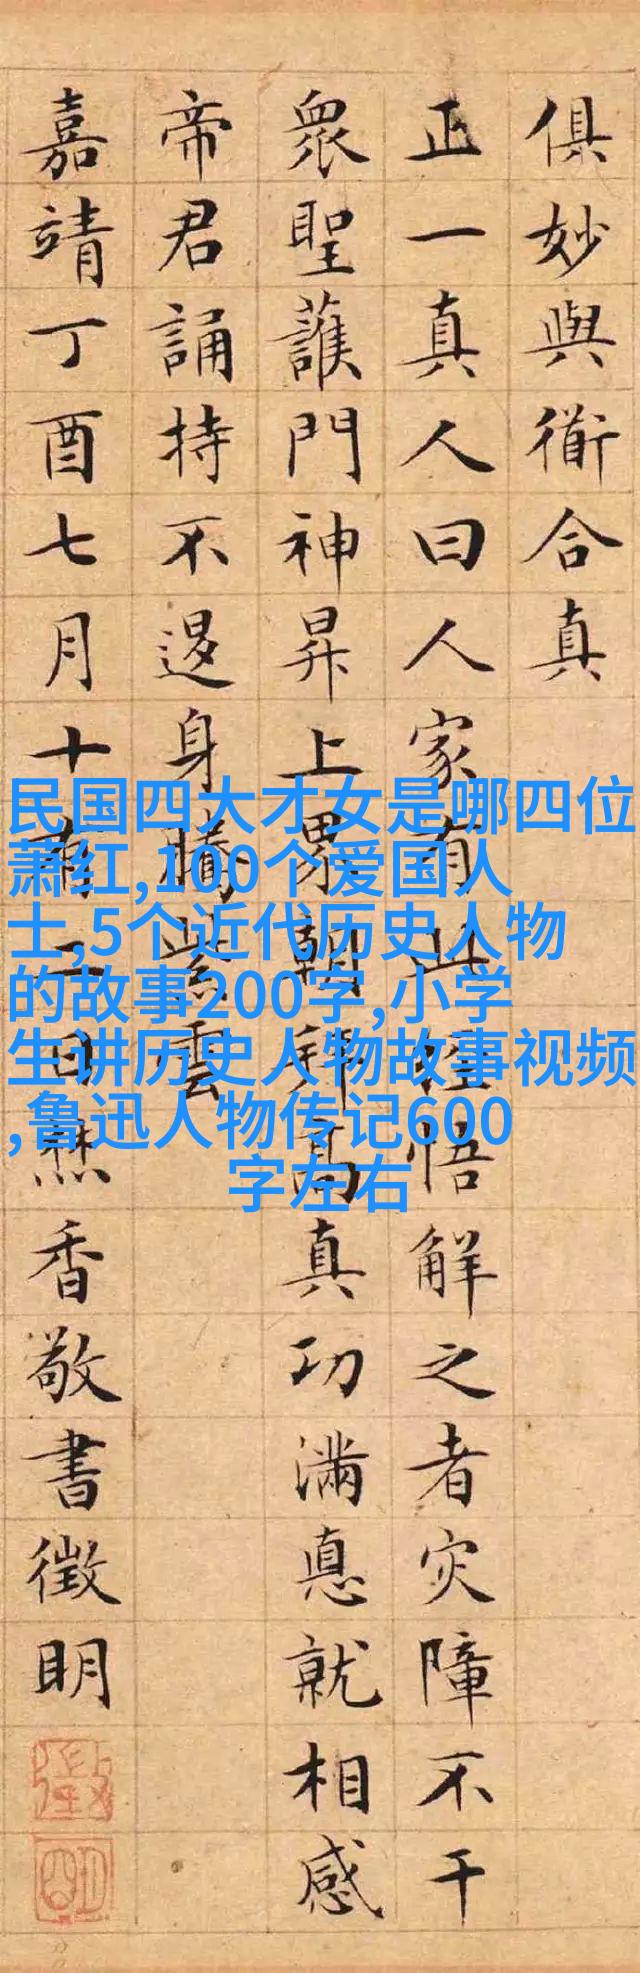 俱妙與衜合真
正一真人曰人家有此經悟解之者灾障不干
衆聖護門神昇上界朝拜高真功滿悳就相感
帝君誦持不退身騰紫雲
嘉靖丁酉七月十有二日焚香敬書徵明
徵
明
民国四大才女是哪四位
萧红,100个爱国人
士,5个近代历史人物
的故事200字,小学
生讲历史人物故事视频
,鲁迅人物传记600
字左右